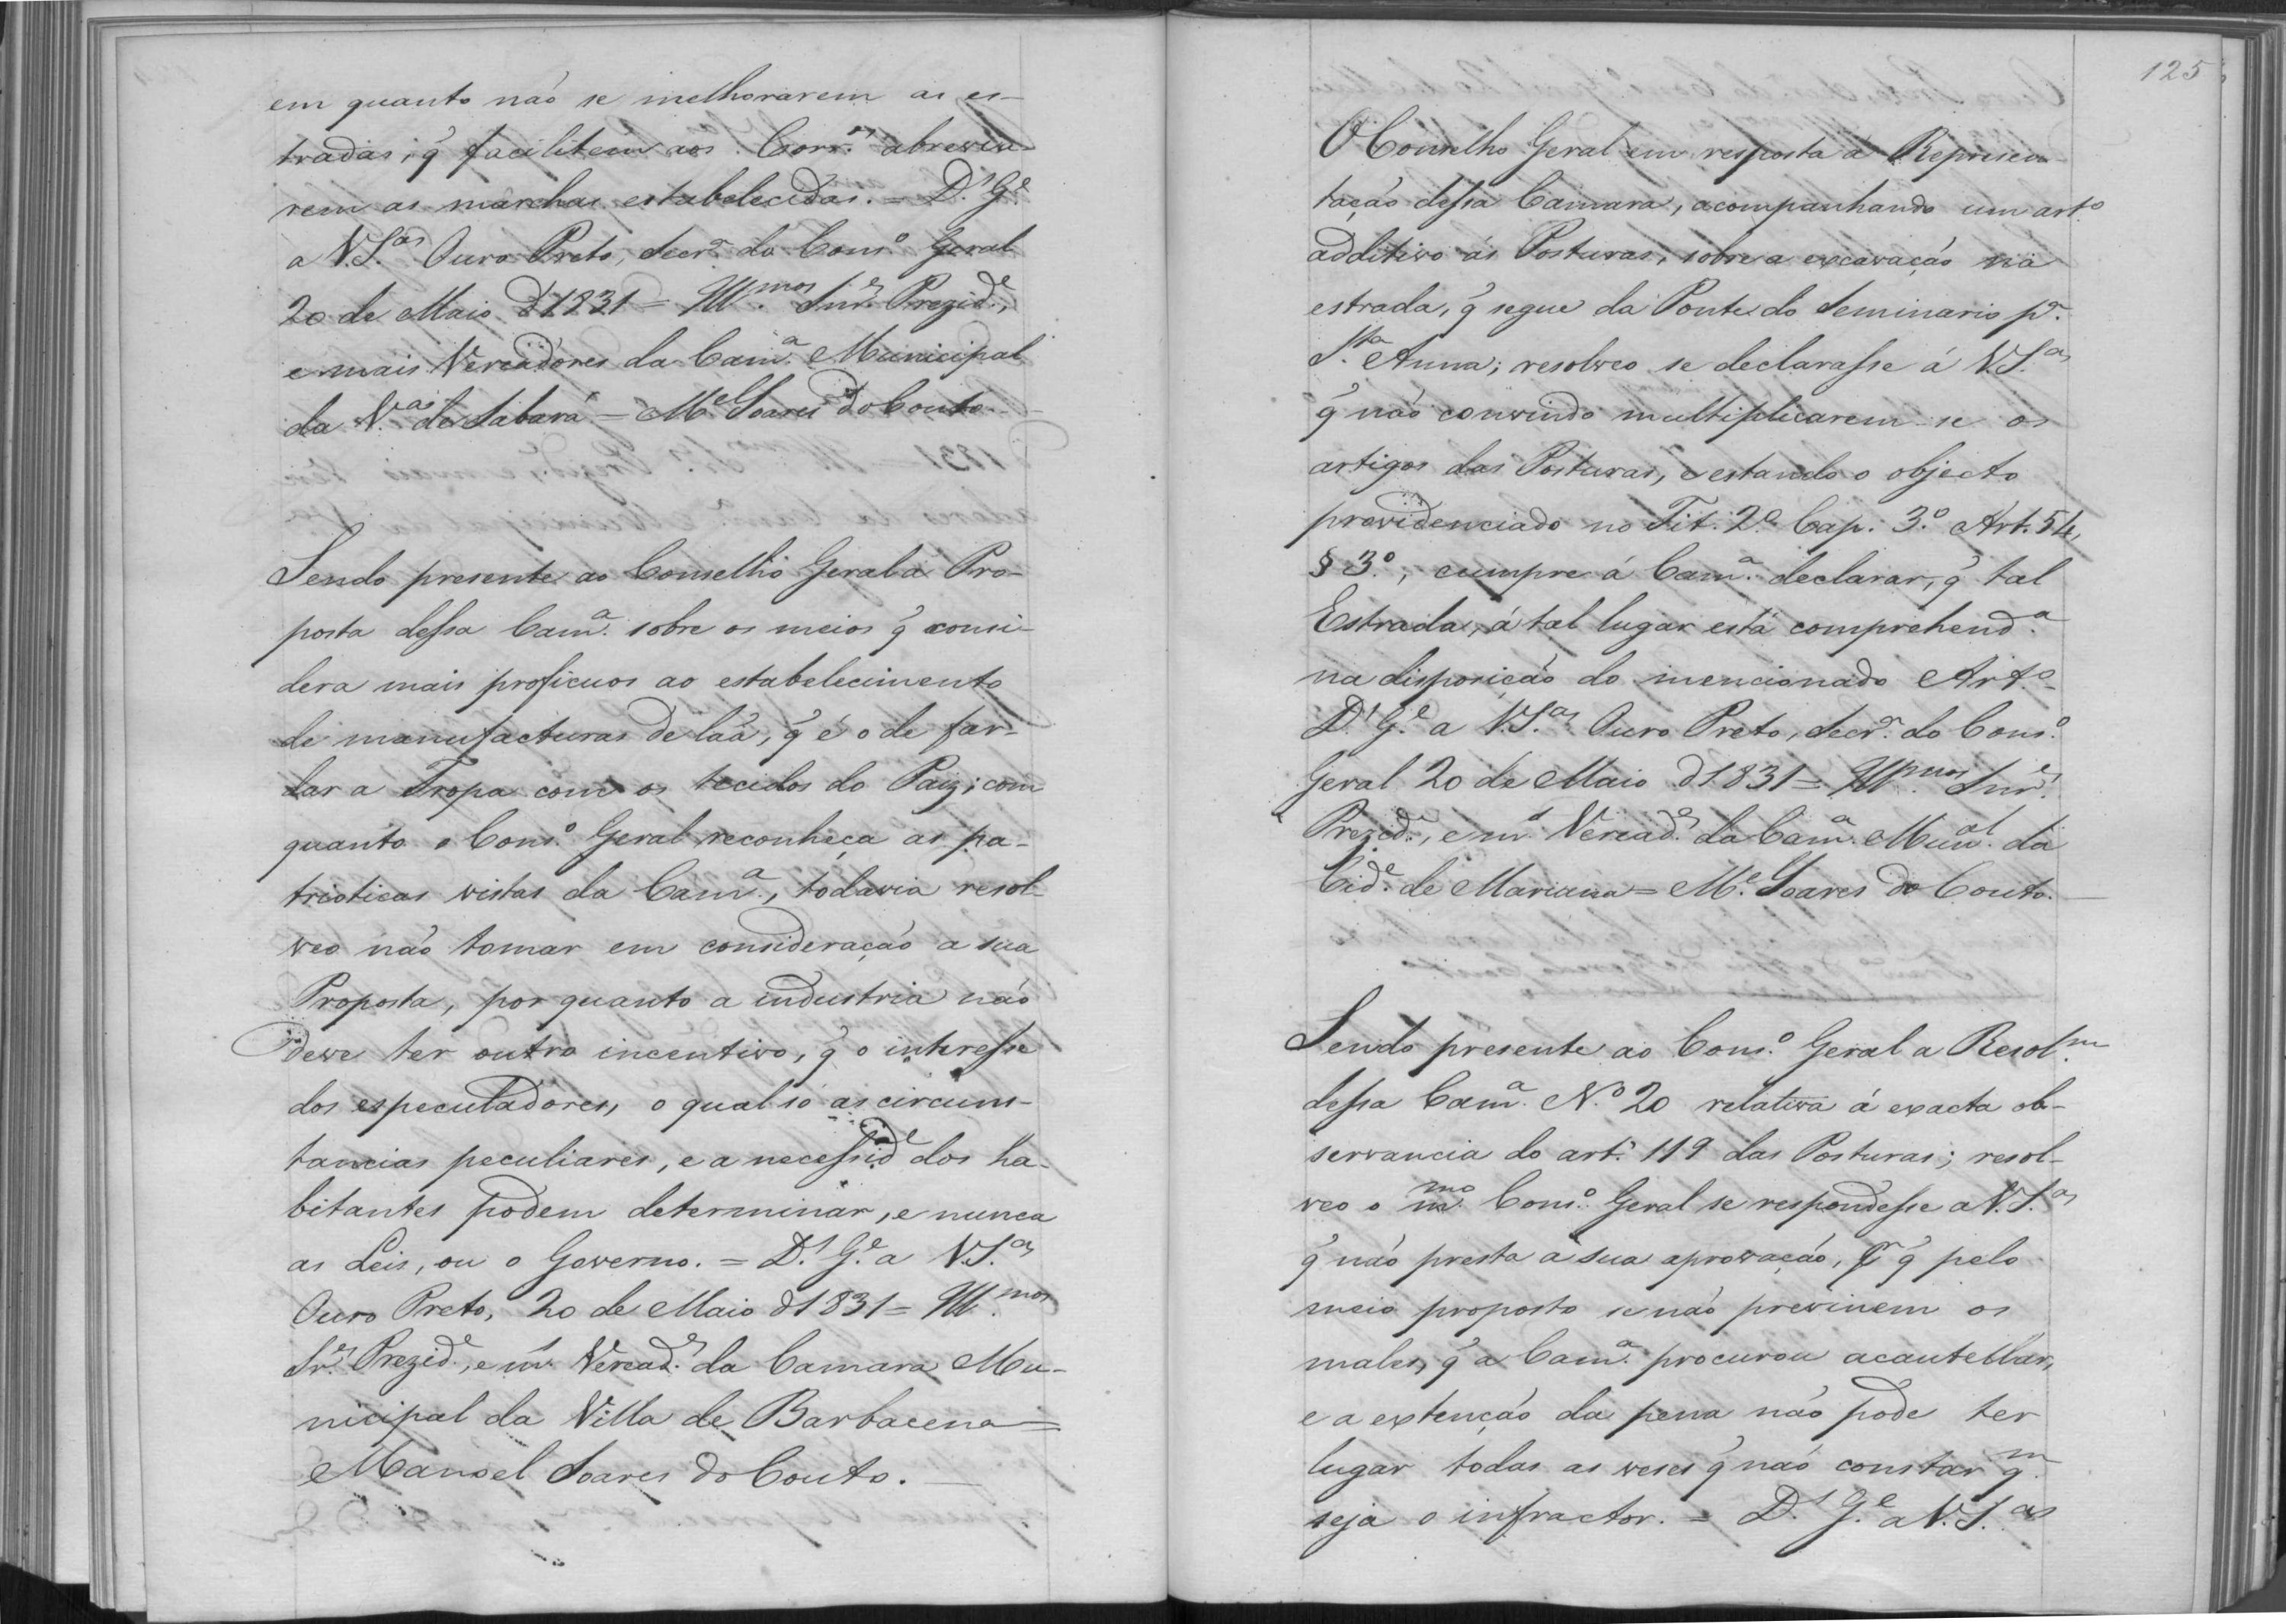 em quanto não se melhorarem as es-
tradas, q̃ facilitem aos Corr.es abrevia-
rem as marchas estabelecidas. = D.s G.e
a V.S.as Ouro Preto, Secr.a do Cons.o Geral
20 de Maio d'1831 = Ill.mos Snr.es Prezid.e,
e mais Vereadores da Cam.a Municipal
da V.a de Sabará = M.el Soares do Couto. —
Sendo presente ao Conselho Geral a Pro-
posta dessa Cam.a sobre os meios q̃ consi-
dera mais proficuos ao estabelecimento
de manufacturas de lãa, q̃ é o de far-
dar a Tropa com os tecidos do Paiz; com
quanto o Cons.o Geral reconheça as pa-
trioticas vistas da Cam.a, todavia resol-
veo não tomar em consideração a sua
Proposta, por quanto a industria não
deve ter outro incentivo, q̃ o interesse
dos especuladores, o qual só as circums-
tancias peculiares, e a necessid.e dos ha-
bitantes podem determinar, e nunca
as Leis, ou o Governo. = D.s G.e a V.S.as
Ouro Preto, 20 de Maio d'1831 = Ill.mos
Sr.es Prezid.e, e m.s Veread.es da Camara Mu-
nicipal da Villa de Barbacena =
Manoel Soares do Couto. —
125
O Conselho Geral em resposta á Represen-
tação dessa Camara, acompanhando um art.o
additivo ás Posturas, sobre a excavação na
estrada, q̃ segue da Ponte do Seminario p.a
S.ta Anna; resolveo se declarasse á V.S.as
q̃ não convindo multiplicarem-se os
artigos das Posturas, e estando o objecto
providenciado no Tit. 2.o Cap. 3.o Art. 54,
§ 3.o, cumpre á Cam.a declarar, q̃ tal
Estrada, á tal lugar está comprehend.a
na disposição do mencionado Art.o
D.s G.e a V.S.as Ouro Preto, Secr.a do Cons.o
Geral 20 de Maio d'1831 = Ill.mos Snr.es
Prezid.e, e m.s Veread.es da Cam.a Mun.al da
Cid.e de Mariana = M.el Soares do Couto. —
Sendo presente ao Cons.o Geral a Resol.m
dessa Cam.a N.o 20 relativa á exacta ob-
servancia do art.o 119 das Posturas; resol-
veo o m.mo Cons.o Geral se respondesse a V.S.as
q̃ não presta a sua aprovação, p.r q̃ pelo
meio proposto se não previnem os
males, q̃ a Cam.a procurou acautellar,
e a extenção da pena não pode ter
lugar todas as veses q̃ não constar q.m
seja o infractor. = D.s G.e a V.S.as